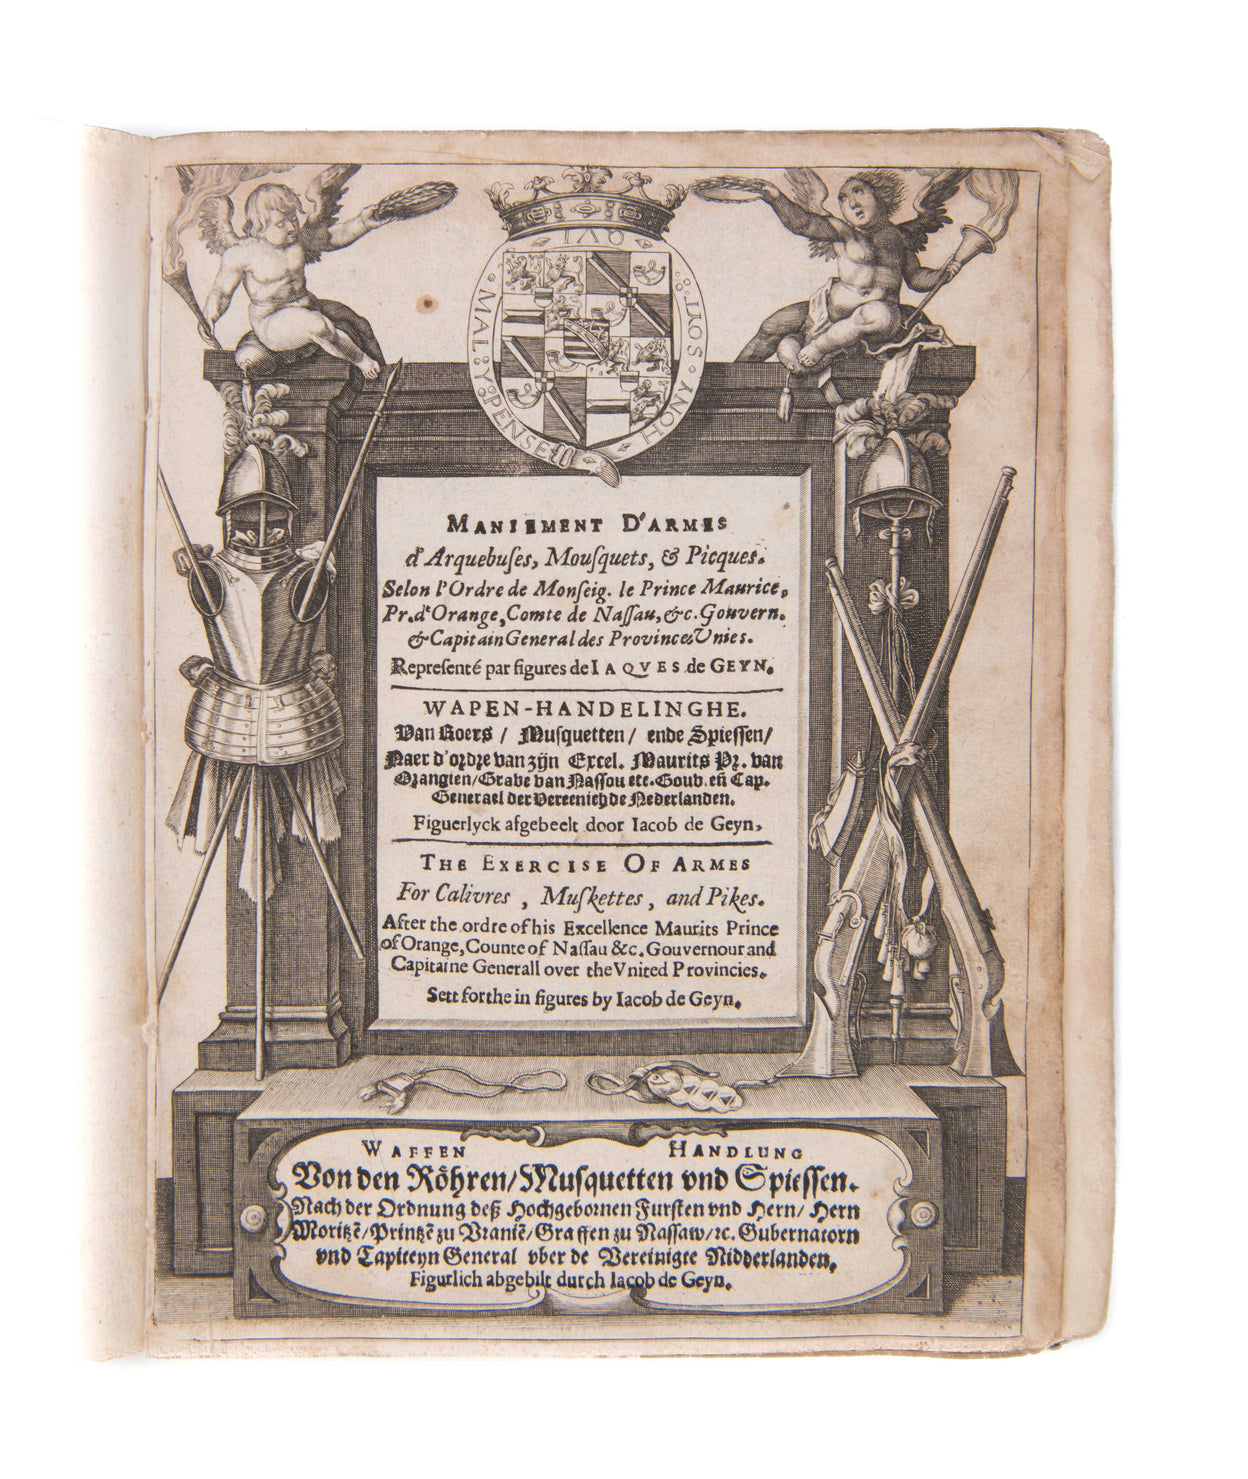 HONY · SOIT · QVI MAL · Y · PENSE
MANIEMENT D'ARMES
d'Arquebuſes, Mouſquets, & Picques.
Selon l'Ordre de Monſeig. le Prince Maurice,
Pr. d'Orange, Comte de Naſſau, &c. Gouvern.
& Capitain General des Provinces Vnies.
Repreſenté par figures de IAQVES de GEYN.
WAPEN-HANDELINGHE.
Van Roers / Muſquetten / ende Spieſſen/
Naer d'ordre van zijn Excel. Maurits Pr. van
Orangien/Grave van Naſſou etc. Gouv. eñ Cap.
Generael der Vereenichde Nederlanden.
Figuerlyck afgebeelt door Iacob de Geyn,
THE EXERCISE OF ARMES
For Calivres , Muſkettes , and Pikes.
After the ordre of his Excellence Maurits Prince
of Orange, Counte of Naſſau &c. Gouvernour and
Capitaine Generall over the Vnited Provincies.
Sett forthe in figures by Iacob de Geyn.
WAFFEN HANDLUNG
Von den Röhren/Muſquetten vnd Spieſſen.
Nach der Ordnung deß Hochgebornen Furſten vnd Hern/ Hern
Moritzē/Printzē zu Vraniē/Graffen zu Naſſaw/ꝛc. Gubernatorn
vnd Capiteyn General vber de Vereinigte Nidderlanden.
Figurlich abgebilt durch Iacob de Geyn.